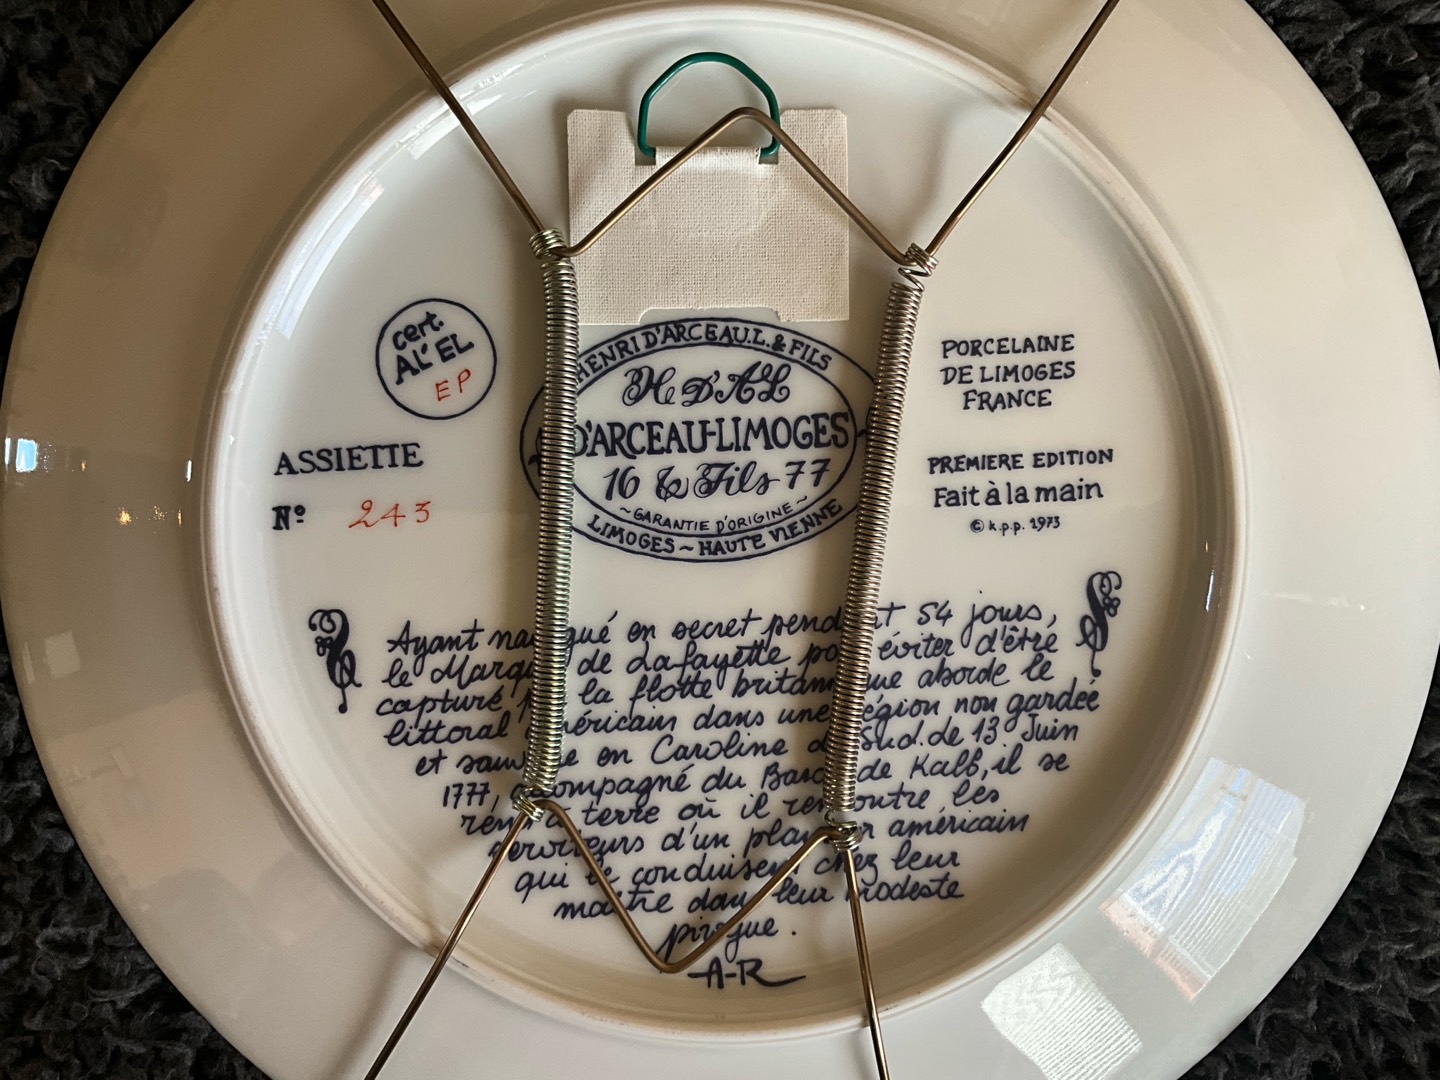 cert.
AL' EL
EP
ASSIETTE
Nº 243
HENRI D'ARCEAU.L. & FILS
H D'A L
D'ARCEAU-LIMOGES
16 & Fils 77
~GARANTIE D'ORIGINE~
LIMOGES ~ HAUTE VIENNE
PORCELAINE
DE LIMOGES
FRANCE
PREMIERE EDITION
Fait à la main
© k.p.p. 1973
Ayant navigué en secret pendant 54 jours,
le Marquis de Lafayette pour éviter d'être
capturé par la flotte britannique aborde le
littoral américain dans une région non gardée
et sauvage en Caroline du Sud. de 13 Juin
1777, accompagné du Baron de Kalb, il se
rend à terre où il rencontre les
serviteurs d'un planteur américain
qui le conduisent chez leur
maître dans leur modeste
pirogue.
A-R